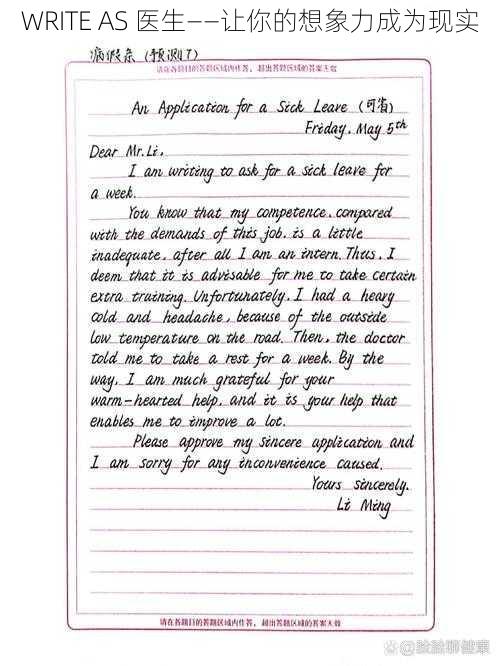 WRITE AS 医生——让你的想象力成为现实
病假条（预测7）
请在各题目的答题区域内作答，超出答题区域的答案无效
An Application for a Sick Leave (可省)
Friday, May 5th
Dear Mr.Li,
I am writing to ask for a sick leave for
a week.
You know that my competence, compared
with the demands of this job, is a little
inadequate, after all I am an intern. Thus, I
deem that it is advisable for me to take certain
extra training. Unfortunately, I had a heavy
cold and headache, because of the outside
low temperature on the road. Then, the doctor
told me to take a rest for a week. By the
way, I am much grateful for your
warm-hearted help, and it is your help that
enables me to improve a lot.
Please approve my sincere application and
I am sorry for any inconvenience caused.
Yours sincerely,
Li Ming
请在各题目的答题区域内作答，超出答题区域的答案无效
@脸脸聊健康